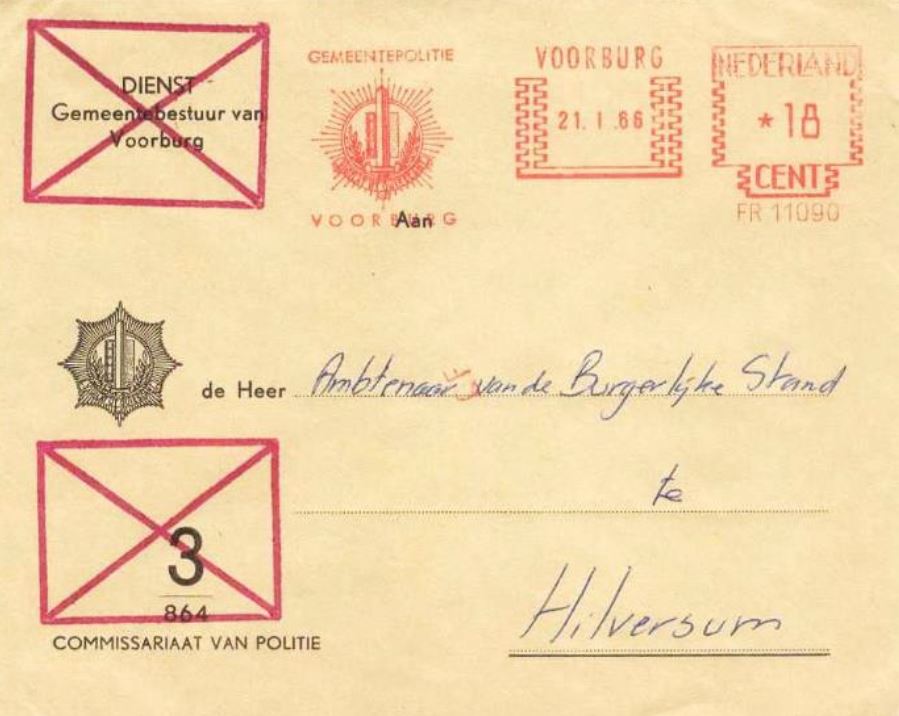 DIENST
Gemeentebestuur van
Voorburg
GEMEENTEPOLITIE
VOORBURG
VOORBURG
21.I.66
NEDERLAND
*18
CENT
FR 11090
Aan
de Heer Ambtenaar van de Burgerlijke Stand
te
Hilversum
3
864
COMMISSARIAAT VAN POLITIE